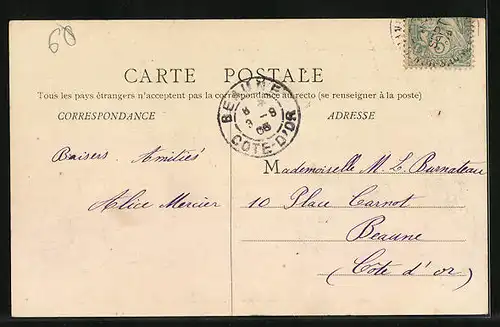 60
CARTE POSTALE
Tous les pays étrangers n'acceptent pas la correspondance au recto (se renseigner à la poste)
CORRESPONDANCE
ADRESSE
BEAUNE
8
3 -9
06
COTE-D'OR
Baisers. Amitiés
Alice Mercier
Mademoiselle M. L. Burnateau
10 Place Carnot
Beaune
(Côte d'or)